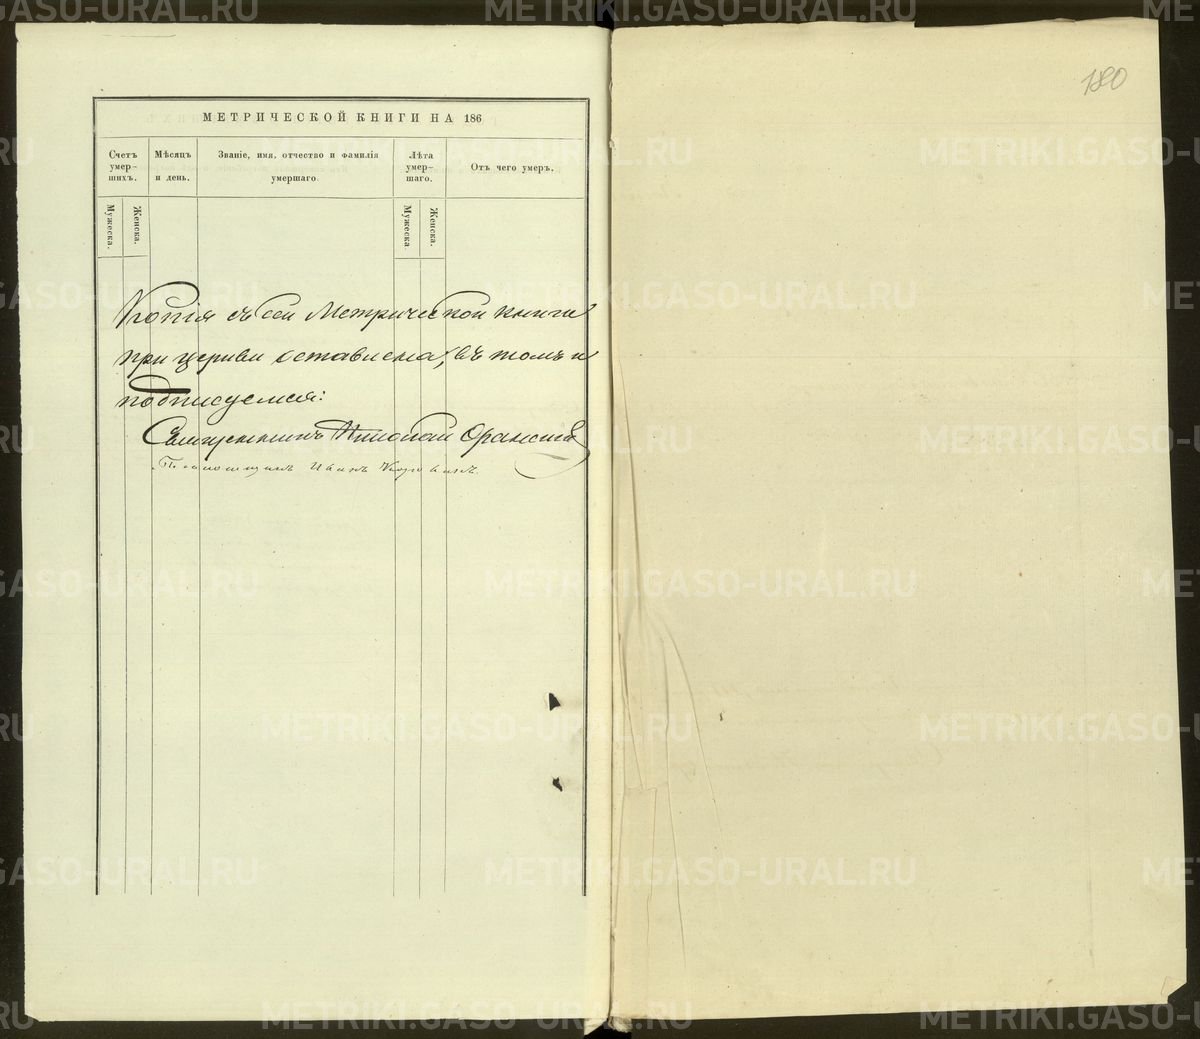 180
МЕТРИЧЕСКОЙ КНИГИ НА 186
Счетъ умер-шихъ.
Мѣсяцъ и день.
Званіе, имя, отчество и фамилія умершаго.
Лѣта умер-шаго.
Отъ чего умеръ.
Мужеска.
Женска.
Мужеска.
Женска.
Копія съ сей Метрической книги
при церкви оставлена, въ томъ и
подписуемся:
Священникъ Николай
Иванъ
METRIKI.GASO-URAL.RU